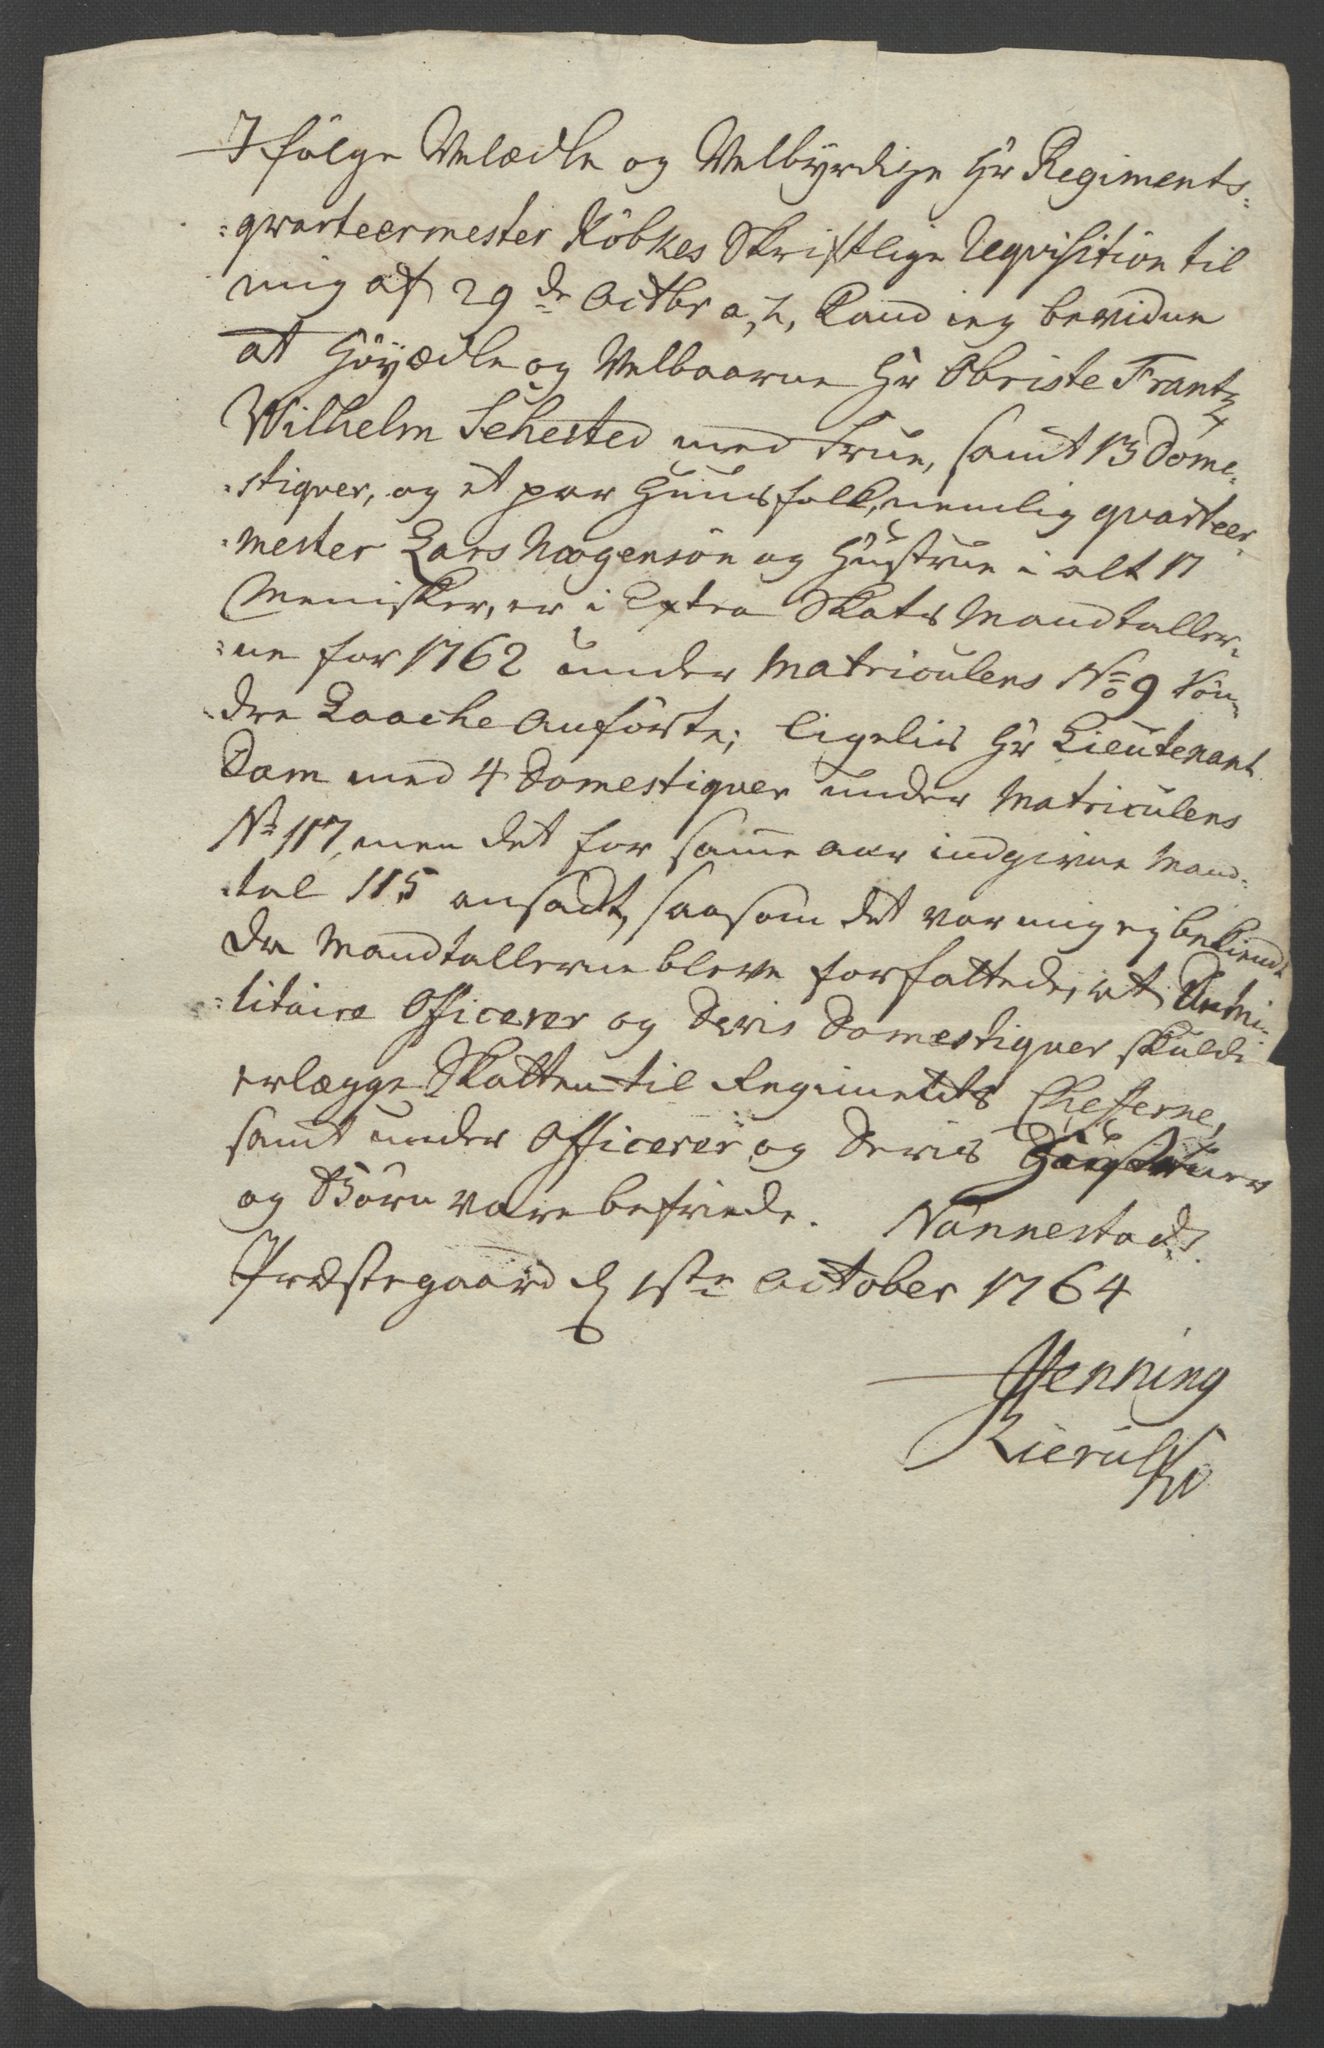 I følge Velædle og Velbÿrdige Hr Regiments-
qvarteermester Röbkes Skriftlige Requisition til
mig af 29de Octbr a, h, Kand ieg bevidne
at Höÿædle og Velbaarne Hr Obriste Frantz
Wilhelm Sehested med Frue, samt 13 Dome-
stiquer, og et par Huusfolk, nemlig qvarteer-
mester Lars Mogensön og Hustrue i alt 17
Menisker, er i Extra Skats Mandtaller-
ne for 1762 under Matriculens No 9 Són-
dre Laache Anförte; ligeliis Hr Lieutenant
Dam med 4 Domestiquer under Matriculens
No 117, men det for samme aar indgivne Mand-
tal 115 ansadt, saasom det var mig ej bekiendt
da Mandtallerne bleve forfattede, at de Mi-
litaire Officerer og Deris Domestiquer skulde
erlægge Skatten til Regiments Cheferne,
samt under Officerer og Deris Hustruer
og Börn vare befriede. Nannestads
Præstegaard d 1ste October 1764
Henning
Kierulf